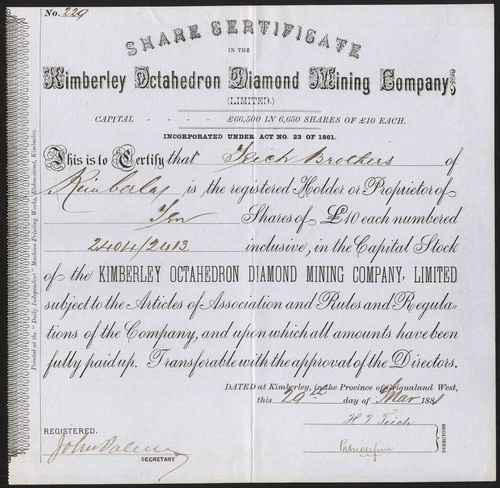 No. 229
SHARE CERTIFICATE
IN THE
Kimberley Octahedron Diamond Mining Company,
(LIMITED.)
CAPITAL - - - - £66,500 IN 6,650 SHARES OF £10 EACH.
INCORPORATED UNDER ACT NO. 23 OF 1861.
This is to Certify that Teich Brothers of
Kimberley is the registered Holder or Proprietor of
Ten Shares of £10 each numbered
2404/2413 inclusive, in the Capital Stock
of the KIMBERLEY OCTAHEDRON DIAMOND MINING COMPANY, LIMITED
subject to the Articles of Association and Rules and Regula-
tions of the Company, and upon which all amounts have been
fully paid up. Transferable with the approval of the Directors.
DATED at Kimberley, in the Province of Griqualand West,
this 29th day of Mar 1881
H J Teich
REGISTERED.
John
SECRETARY
DIRECTORS
Printed at the "Daily Independent" Machine Printing Works, Ebden-street, Kimberley.